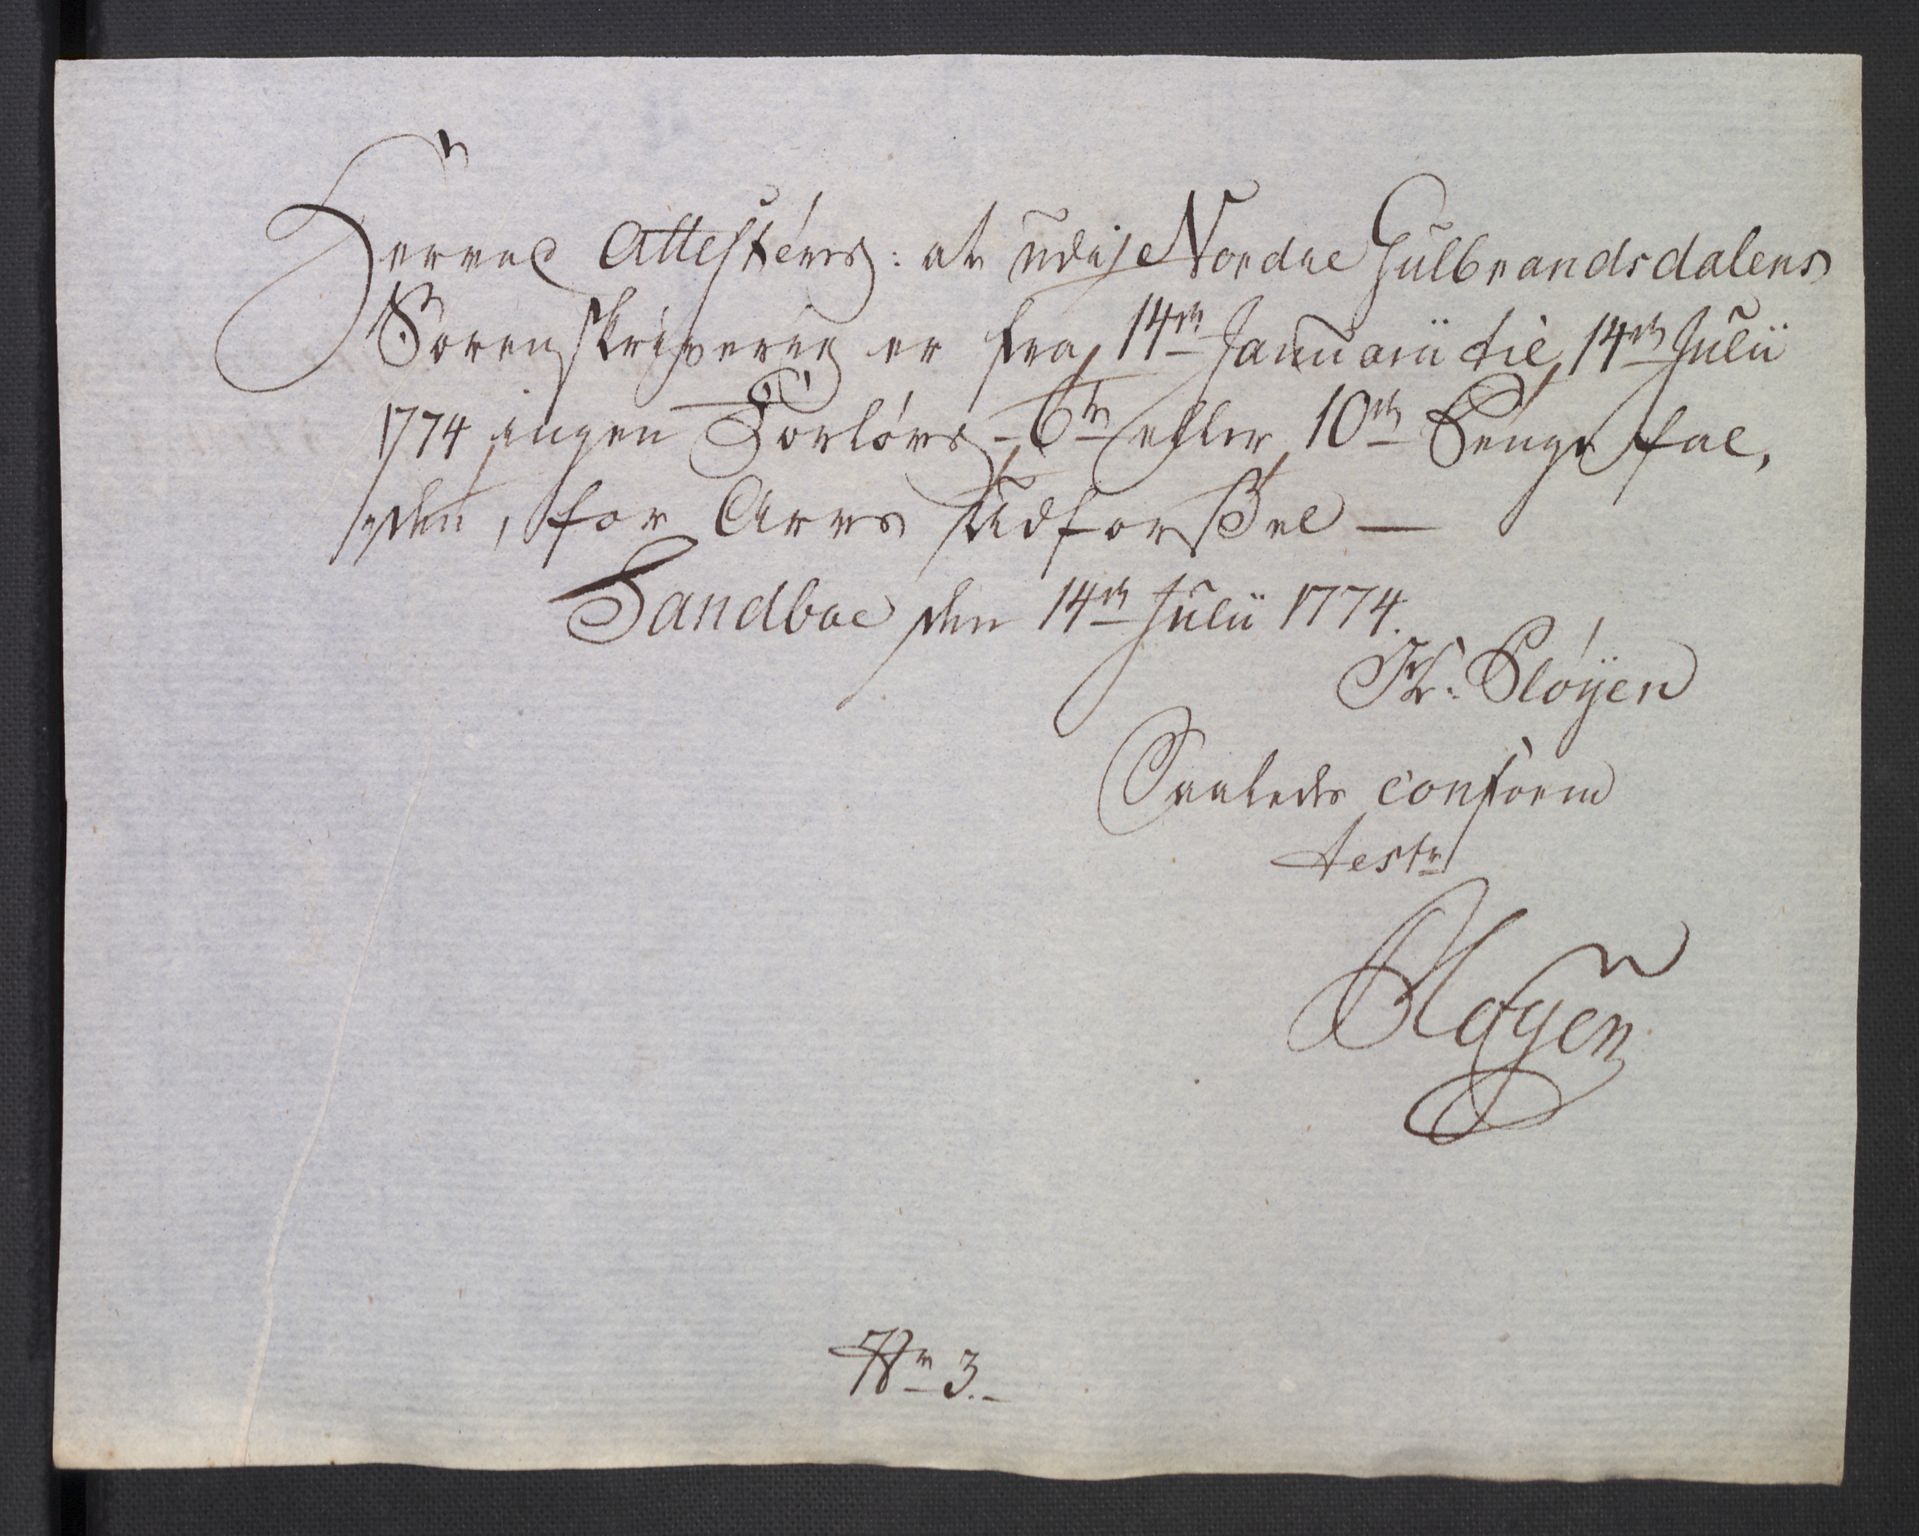 Herved Attesteres: at udi Nordre Gulbrandsdalens
Sorenskriverie er fra 14de Januarii til 14de Julii
1774 ingen Førlovs, 6te eller 10de Penge fal,
den, for Arvs Udførsel —
Sandboe den 14de Julii 1774.
Pløyen
Saaledes conform
test:
Pløyen
No 3.